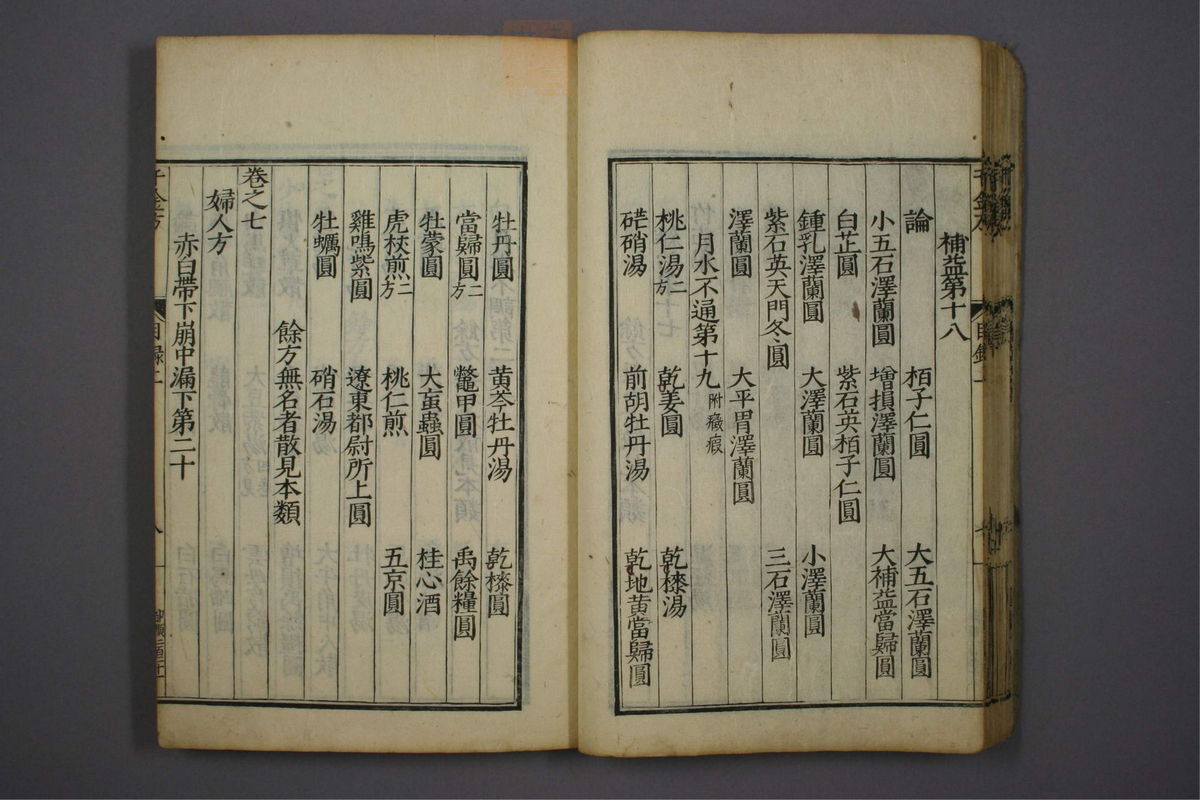 補益第十八
論 栢子仁圓 大五石澤蘭圓
小五石澤蘭圓 增損澤蘭圓 大補益當歸圓
白芷圓 紫石英栢子仁圓
鍾乳澤蘭圓 大澤蘭圓 小澤蘭圓
紫石英天門冬圓 三石澤蘭圓
澤蘭圓 大平胃澤蘭圓
月水不通第十九 附癥瘕
桃仁湯二方 乾姜圓 乾㯃湯
硭硝湯 前胡牡丹湯 乾地黃當歸圓
牡丹圓 黃芩牡丹湯 乾㯃圓
當歸圓二方 鼈甲圓 禹餘糧圓
牡蒙圓 大䖟蟲圓 桂心酒
虎杖煎二方 桃仁煎 五京圓
雞鳴紫圓 遼東都尉所上圓
牡蠣圓 硝石湯
餘方無名者散見本類
卷之七
婦人方
赤白帶下崩中漏下第二十
千金方 目錄二 八